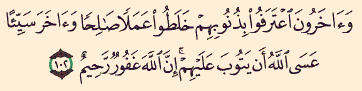 وَءَاخَرُونَ ٱعۡتَرَفُواْ بِذُنُوبِهِمۡ خَلَطُواْ عَمَلٗا صَٰلِحٗا وَءَاخَرَ سَيِّئًا
عَسَى ٱللَّهُ أَن يَتُوبَ عَلَيۡهِمۡۚ إِنَّ ٱللَّهَ غَفُورٞ رَّحِيمٌ ١٠٢